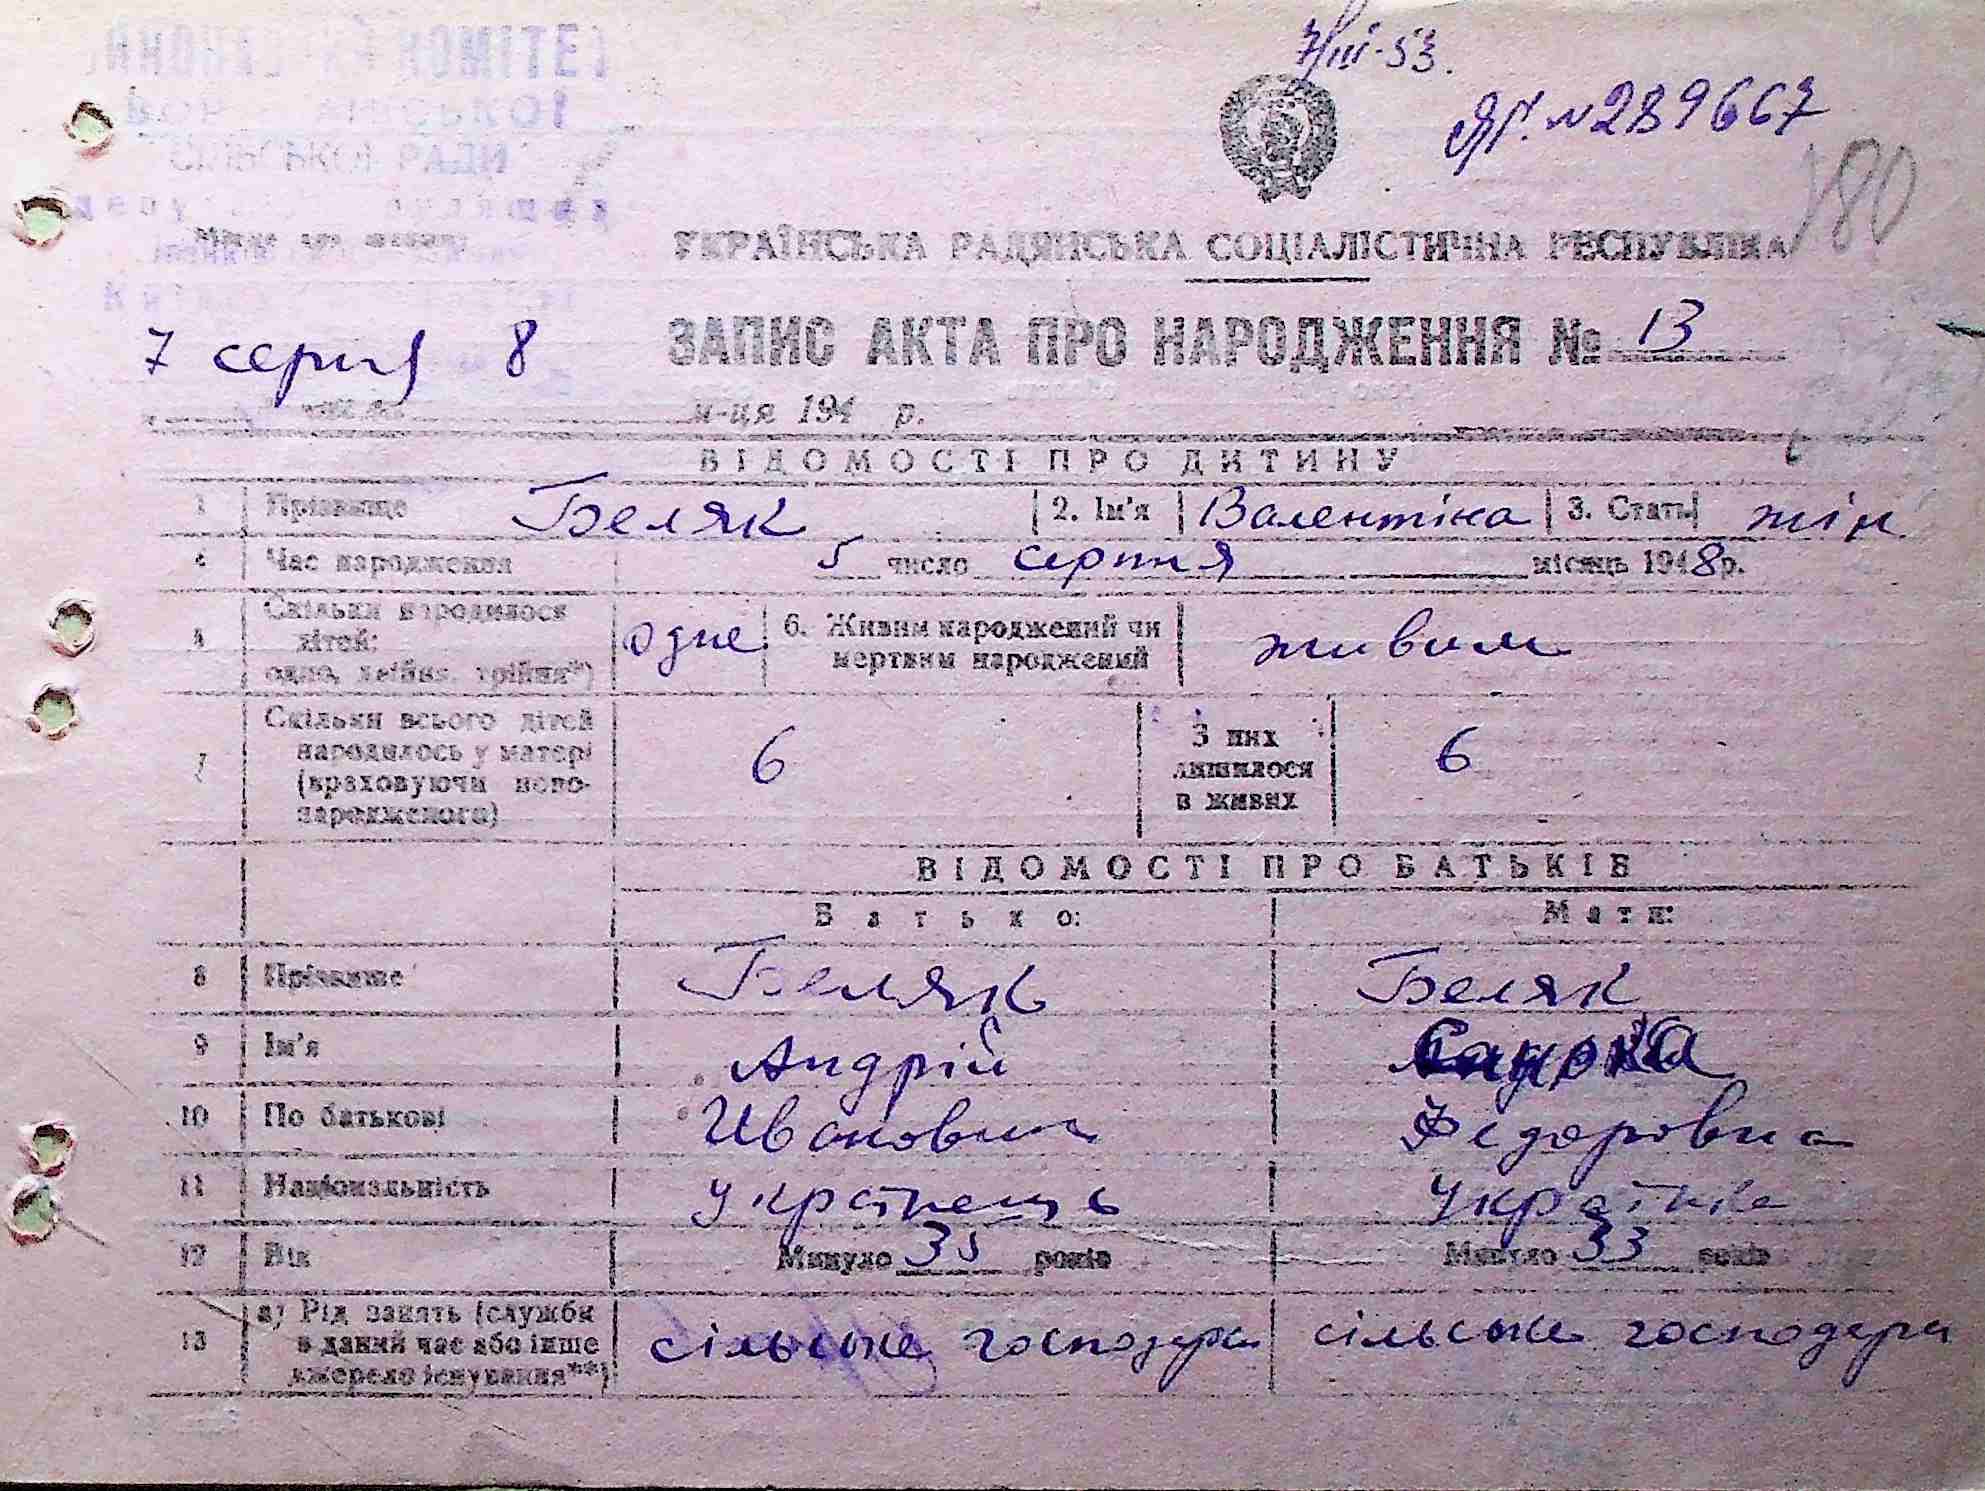 7/III-53.
ЯГ. № 289667
180
КОМІТЕТ
СІЛЬСЬКОЇ РАДИ
УКРАЇНСЬКА РАДЯНСЬКА СОЦІАЛІСТИЧНА РЕСПУБЛІКА
ЗАПИС АКТА ПРО НАРОДЖЕННЯ № 13
7 серпня 8
м-ця 194 р.
ВІДОМОСТІ ПРО ДИТИНУ
1 Прізвище Беляк 2. Ім'я Валентіна 3. Стать жін.
Час народження 5 число серпня місяць 1948 р.
Скільки народилося дітей: одно, двійня, трійня*) одне 6. Живим народжений чи мертвим народжений живим
7 Скільки всього дітей народилось у матері (враховуючи новонародженого) 6 З них лишилося в живих 6
ВІДОМОСТІ ПРО БАТЬКІВ
Батько: Мати:
8 Прізвище Беляк Беляк
9 Ім'я Андрій
10 По батькові Иванович Федоровна
11 Національність Українець Українка
12 Вік Минуло 35 років Минуло 33 років
13 а) Рід занять (служби в даний час або інше джерело існування**) сільське господарн сільське господарн